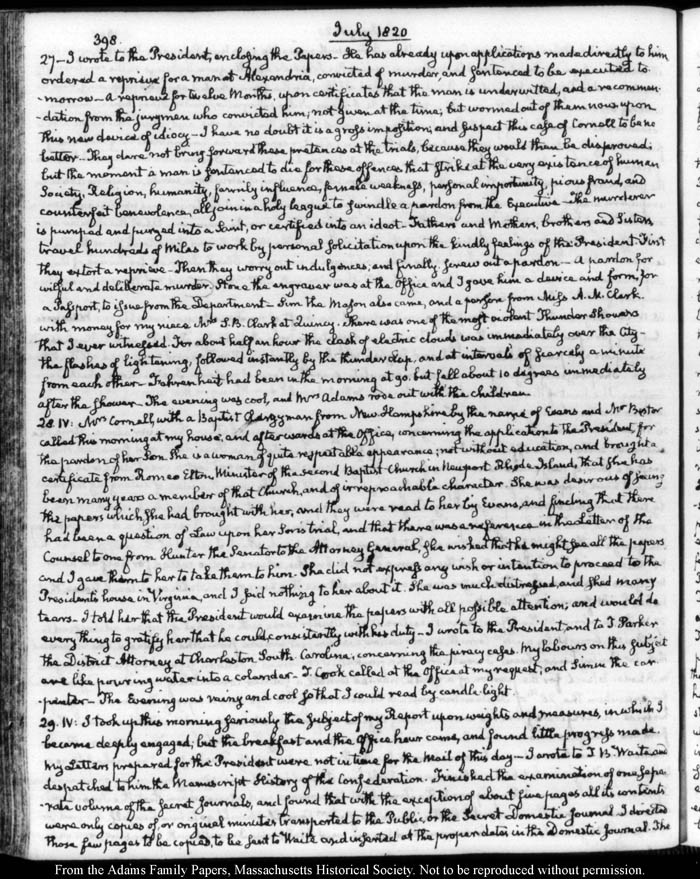 398.
July 1820
27 — I wrote to the President, enclosing the Papers. He has already upon applications made directly to him
ordered a reprieve for a man at Alexandria, convicted of murder, and sentenced to be executed to-
-morrow — A reprieve for twelve Months, upon certificates that the man is underwitted, and a recommen-
-dation from the jurymen who convicted him; not given at the time; but wormed out of them now upon
this new device of idiocy — I have no doubt it is a gross imposition; and suspect this case of Cornell to be no
better — They dare not bring forward these pretences at the trials, because they would then be disproved;
but the moment a man is sentenced to die for those offences that strike at the very existence of human
Society, Religion, humanity, family influence, female weakness, personal importunity, pious fraud, and
counterfeit benevolence, all join in a holy league to swindle a pardon from the Executive — The murderer
is pumped and purged into a Saint, or certified into an ideot — Fathers and Mothers, brothers and Sisters
travel hundreds of Miles to work by personal solicitation upon the kindly feelings of the President. First
they extort a reprieve — Then they worry out indulgences; and finally, screw out a pardon — A pardon for
wilful and deliberate murder. Stone the engraver was at the Office and I gave him a device and form, for
a Passport, to issue from the Department — Sim the Mason also came, and a person from Miss A. M. Clark
with money for my niece Mrs S. B. Clark at Quincy. There was one of the most violent Thunder Showers
that I ever witnessed. For about half an hour the clash of electric clouds was immediately over the City —
the flashes of lightening, followed instantly by the thunder clap, and at intervals of scarcely a minute
from each other — Fahrenheit had been in the morning at 90. but fell about 10 degrees immediately
after the shower — The evening was cool, and Mrs Adams rode out with the children.
28. IV: Mrs Cornell, with a Baptist Clergyman from New Hampshire by the name of Evans and Mr Bestor
called this morning at my house, and afterwards at the Office, concerning the application to the President, for
the pardon of her Son. She is a woman of quite respectable appearance; not without education, and brought a
certificate from Romeo Elton, Minister of the second Baptist Church in Newport Rhode Island, that she has
been many years a member of that Church, and of irreproachable character. She was desirous of seeing
the papers which she had brought with her, and they were read to her by Evans, and finding that there
had been a question of Law upon her Son's trial, and that there was a reference in the Letter of the
Counsel to one from Hunter the Senator to the Attorney General, she wished that he might see all the papers
and I gave them to her to take them to him. She did not express any wish or intention to proceed to the
President's house in Virginia, and I said nothing to her about it. She was much distressed, and shed many
tears. I told her that the President would examine the papers with all possible attention; and would do
every thing to gratify her that he could, consistently with his duty — I wrote to the President, and to T. Parker
the District Attorney at Charleston South Carolina; concerning the piracy cases. My labours on this subject
are like pouring water into a colander — T. Cook called at the Office at my request, and Simes the car-
-penter — The Evening was rainy and cool so that I could read by candle light.
29. IV: I took up this morning seriously the subject of my Report upon weights and measures, in which I
became deeply engaged; but the breakfast and the Office hour came, and found little progress made.
My Letters prepared for the President were not in time for the Mail of this day — I wrote to T. B. Wait and
despatched to him the Manuscript History of the Confederation. Finished the examination of one sepa-
-rate volume of the Secret Journals, and found that with the exception of about five pages all its contents
were only copies of, or original minutes transported to the Public, or the Secret Domestic Journal. I directed
those few pages to be copied, to be sent to Waite and inserted at the proper dates in the Domestic Journal. The
From the Adams Family Papers, Massachusetts Historical Society. Not to be reproduced without permission.